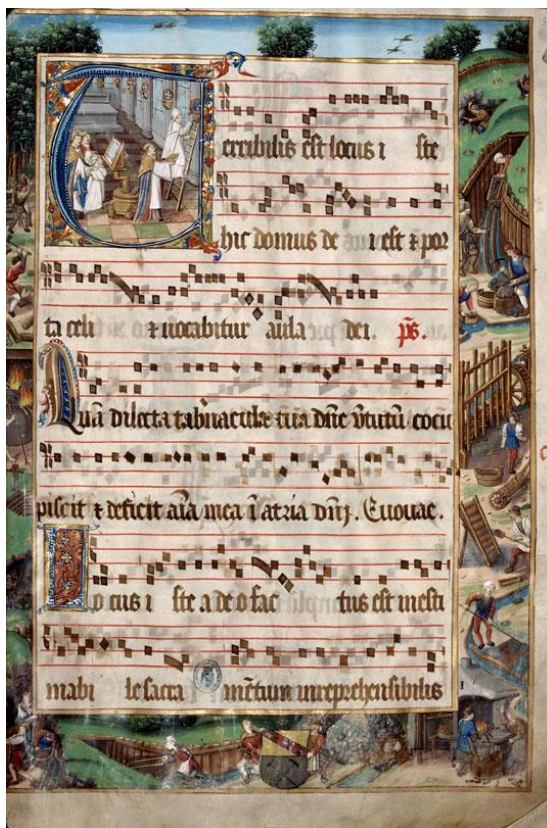 Terribilis est locus i ste
hic domus de i est ⁊ por
ta celi ⁊ uocabitur aula dei. ps.
Quā dilecta tabnacula tua dñe v̄tutū cōcu
piscit ⁊ deficit aīa mea ī atria dñj. Euouae.
Locus i ste a deo fac tus est inesti
mabi le sacra mētum inreprehensibilis